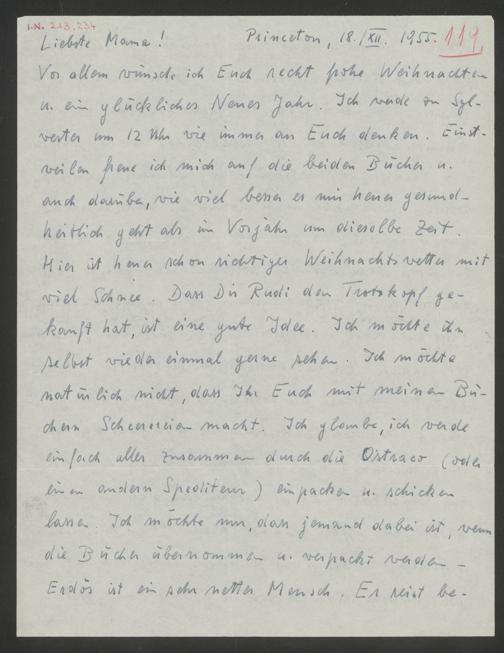 I.N. 213.234
Liebste Mama! Princeton, 18./XII. 1955. 119
Vor allem wünsche ich Euch recht frohe Weihnachten
u. ein glückliches Neues Jahr. Ich werde zu Syl-
vester um 12 Uhr wie immer an Euch denken. Einst-
weilen freue ich mich auf die beiden Bücher u.
auch darüber, wie viel besser es mir heuer gesund-
heitlich geht als im Vorjahr um dieselbe Zeit.
Hier ist heuer schon richtiges Weihnachtswetter mit
viel Schnee. Dass Dir Rudi den Trotzkopf ge-
kauft hat, ist eine gute Idee. Ich möchte ihn
selbst wieder einmal gerne sehen. Ich möchte
natürlich nicht, dass Ihr Euch mit meinen Bü-
chern Scherereien macht. Ich glaube, ich werde
einfach alles zusammen durch die (oder
einen andern Spediteur) einpacken u. schicken
lassen. Ich möchte nur, dass jemand dabei ist, wenn
die Bücher übernommen u. verpackt werden –
Erdös ist ein sehr netter Mensch. Er reist be-